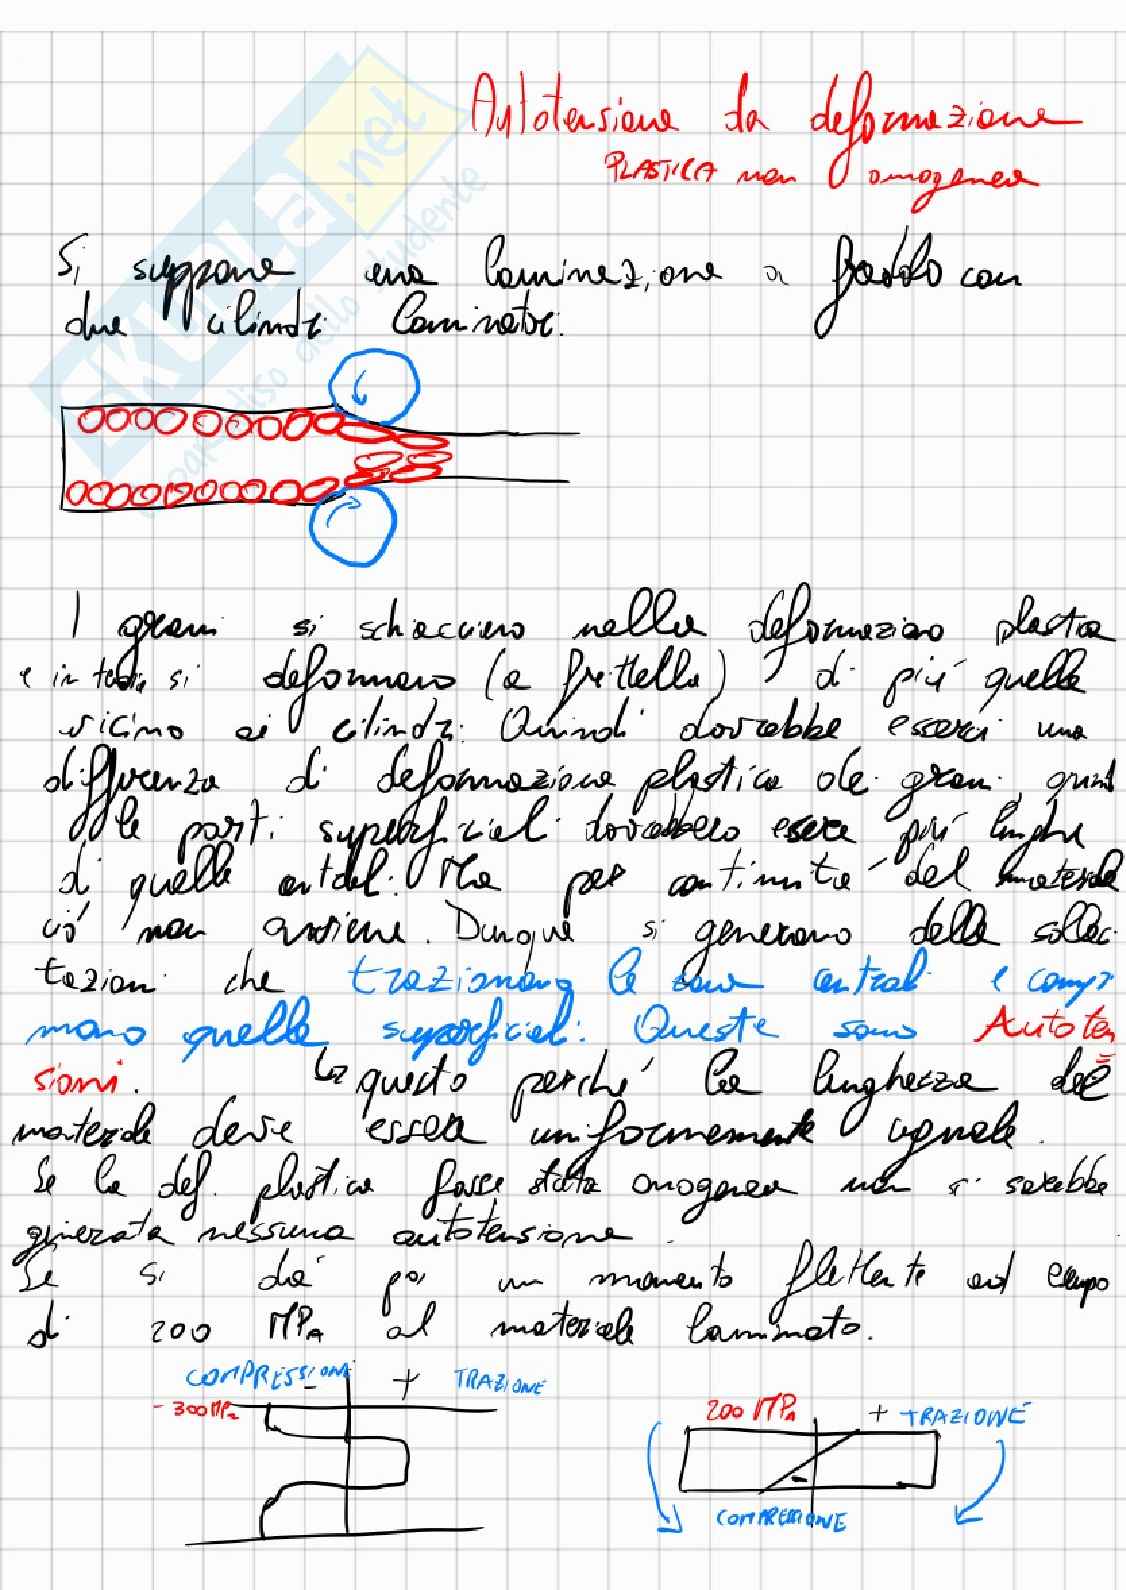 Autotensione da deformazione
PLASTICA non omogenea
Si suppone una laminazione a freddo con
due cilindri laminatori.
I grani si schiacciano nella deformazione plastica
e in si deformano (a frittella) di più quelle
vicino ai cilindri. Quindi dovrebbe esserci una
differenza di deformazione plastica dei grani, quindi
le parti superficiali dovrebbero essere più lunghe
di quelle centrali. Ma per continuità del materiale
ciò non avviene. Dunque si generano delle sollec-
tazioni che trazionano le zone centrali e compri
mono quelle superficiali. Queste sono Autoten
sioni. questo perché la lunghezza del
materiale deve essere uniformemente uguale.
Se la def. plastica fosse stata omogenea non si sarebbe
generata nessuna autotensione.
Se si dà poi un momento flettente ad esempio
di 200 MPa al materiale laminato.
COMPRESSIONE - + TRAZIONE
- 300 MPa
200 MPa + TRAZIONE
-
COMPRESSIONE
SKUOLA.net
paradiso dello studente